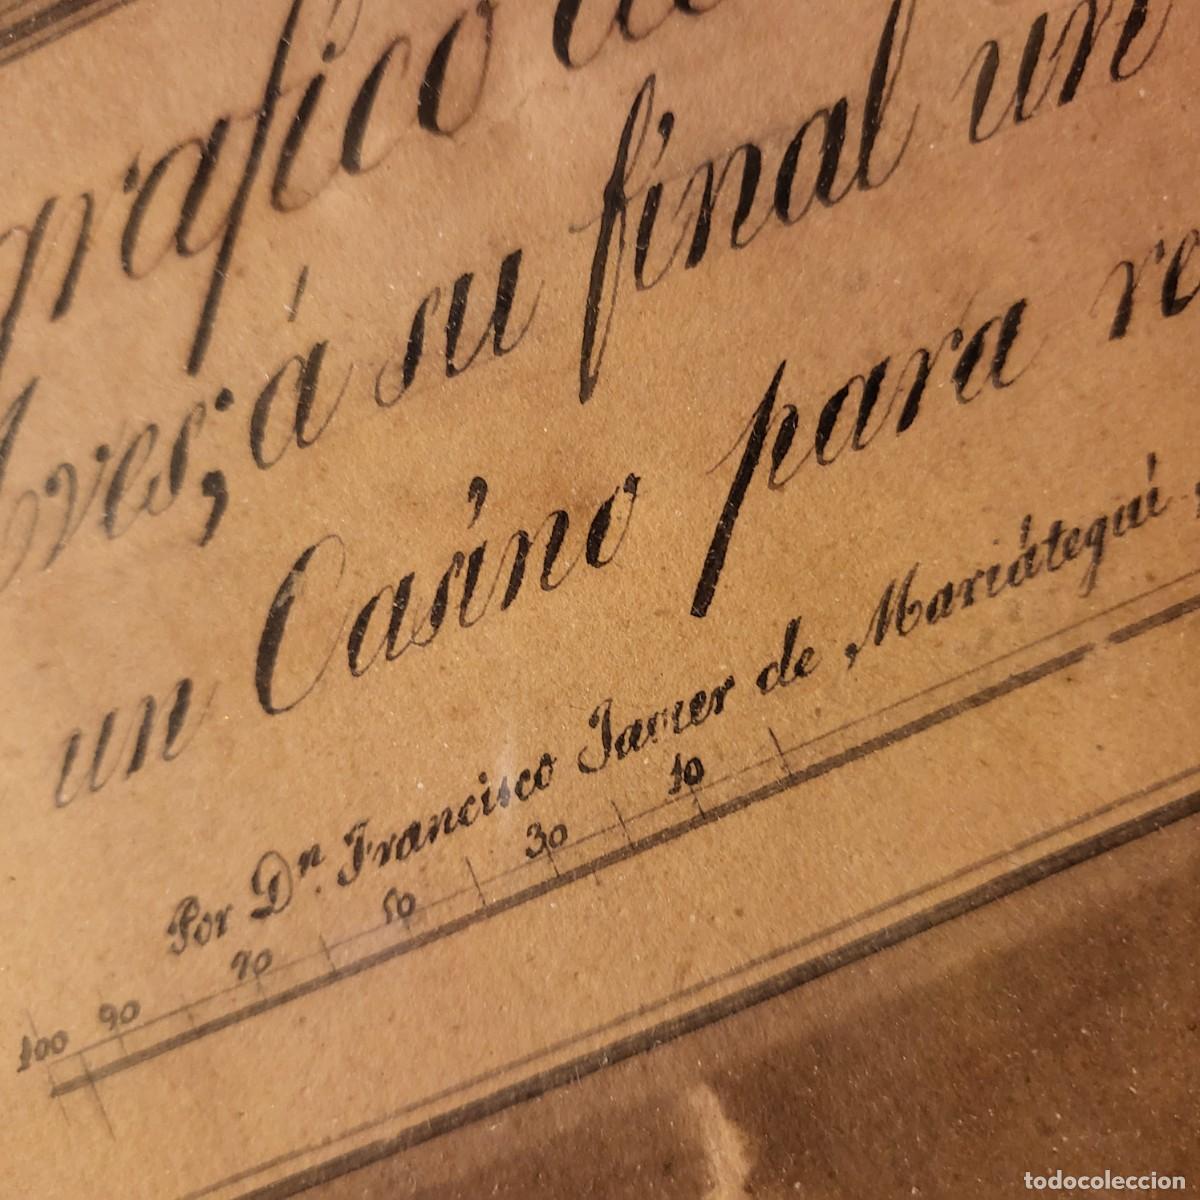 grafico
ves; á su final un
un Casino para re
Por Dn. Francisco Javier de Mariátegui
100 90 70 50 30 10
todocoleccion